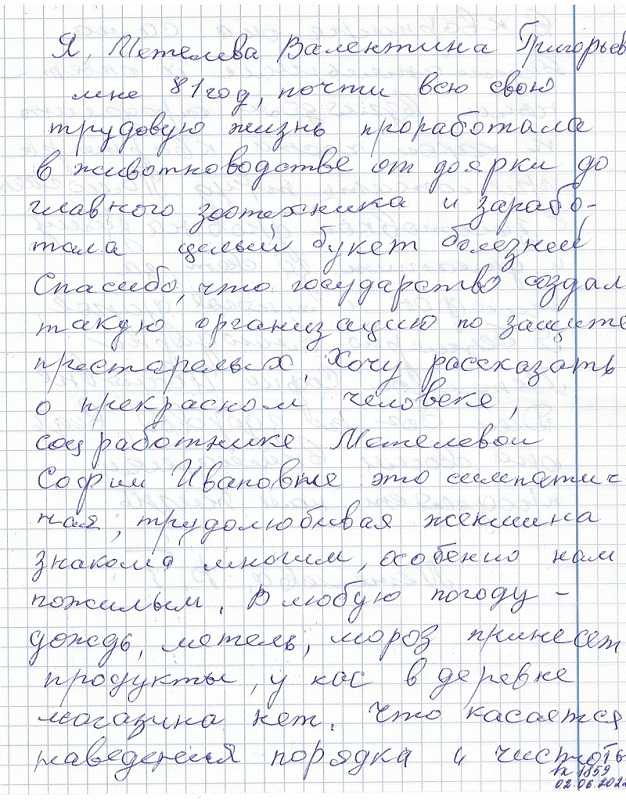 Я, Метелева Валентина Григорьев
мне 81 год, почти всю свою
трудовую жизнь проработала
в животноводстве от доярки до
главного зоотехника и зарабо-
тала целый букет болезней
Спасибо, что государство создал
такую организацию по защите
престарелых. Хочу рассказать
о прекрасном человеке,
соцработнике Метелевой
Софии Ивановне это симпатич
ная, трудолюбивая женщина
знакома многим, особенно нам
пожилым. В любую погоду -
дождь, метель, мороз принесет
продукты, у нас в деревне
магазина нет. Что касается
наведения порядка и чистоты
1859